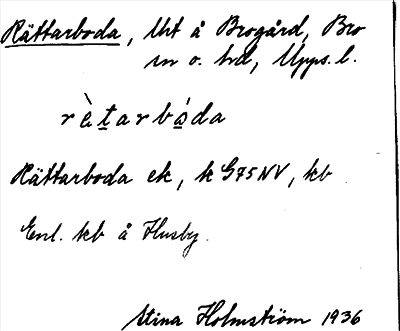 Rättarboda, Uht å Brogård, Bro
sn o. hd, Upps. l.
rètarbóda
Rättarboda ek, k G75NV, kb
Enl. kb å Husby.
Stina Holmström 1936